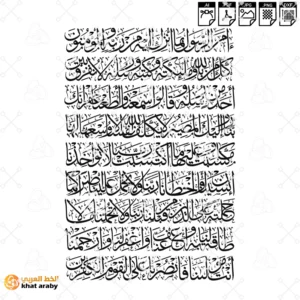 AI PDF JPG PNG DXF
آمن الرسول بما أنزل إليه من ربه والمؤمنون
كل آمن بالله وملئكته وكتبه ورسله لا نفرق بين
أحد من رسله وقالوا سمعنا وأطعنا غفرانك
ربنا وإليك المصير لا يكلف الله نفسا إلا وسعها لها ما
كسبت وعليها ما اكتسبت ربنا لا تؤاخذنا
إن نسينا أو أخطأنا ربنا ولا تحمل علينا إصرا كما
حملته على الذين من قبلنا ربنا ولا تحملنا ما لا
طاقة لنا به واعف عنا واغفر لنا وارحمنا
أنت مولينا فانصرنا على القوم الكافرين
الخط العربي
khat araby